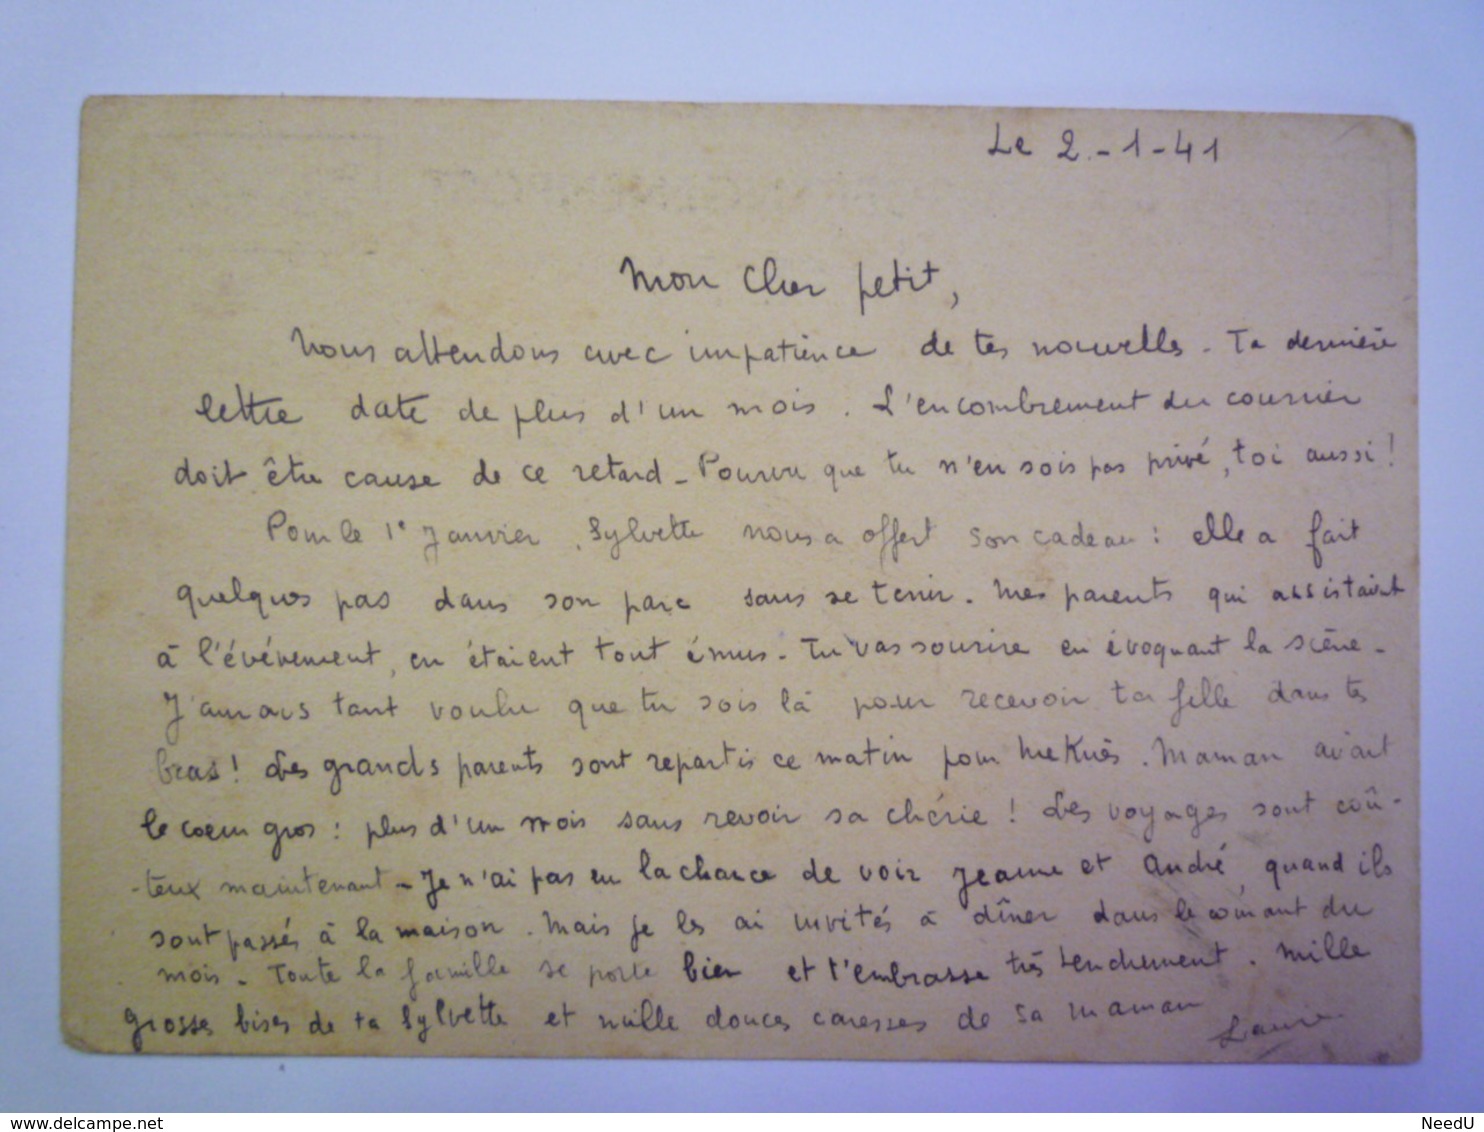 Le 2-1-41
Mon Cher petit,
Nous attendons avec impatience de tes nouvelles. Ta dernière
lettre date de plus d'un mois. L'encombrement du courrier
doit être cause de ce retard - Pourvu que tu n'en sois pas privé, toi aussi !
Pour le 1e Janvier, Sylvette nous a offert son cadeau : elle a fait
quelques pas dans son parc sans se tenir. Mes parents qui assistaient
à l'événement, en étaient tout émus. Tu vas sourire en évoquant la scène -
J'aurais tant voulu que tu sois là pour recevoir ta fille dans tes
bras ! Les grands parents sont repartis ce matin pour Meknès. Maman avait
le coeur gros : plus d'un mois sans revoir sa chérie ! Les voyages sont coû-
-teux maintenant - Je n'ai pas eu la chance de voir Jeanne et André, quand ils
sont passés à la maison. Mais je les ai invités à dîner dans le courant du
mois - Toute la famille se porte bien et t'embrasse très tendrement. Mille
grosses bises de ta Sylvette et mille douces caresses de sa maman
delcampe.net
NeedU